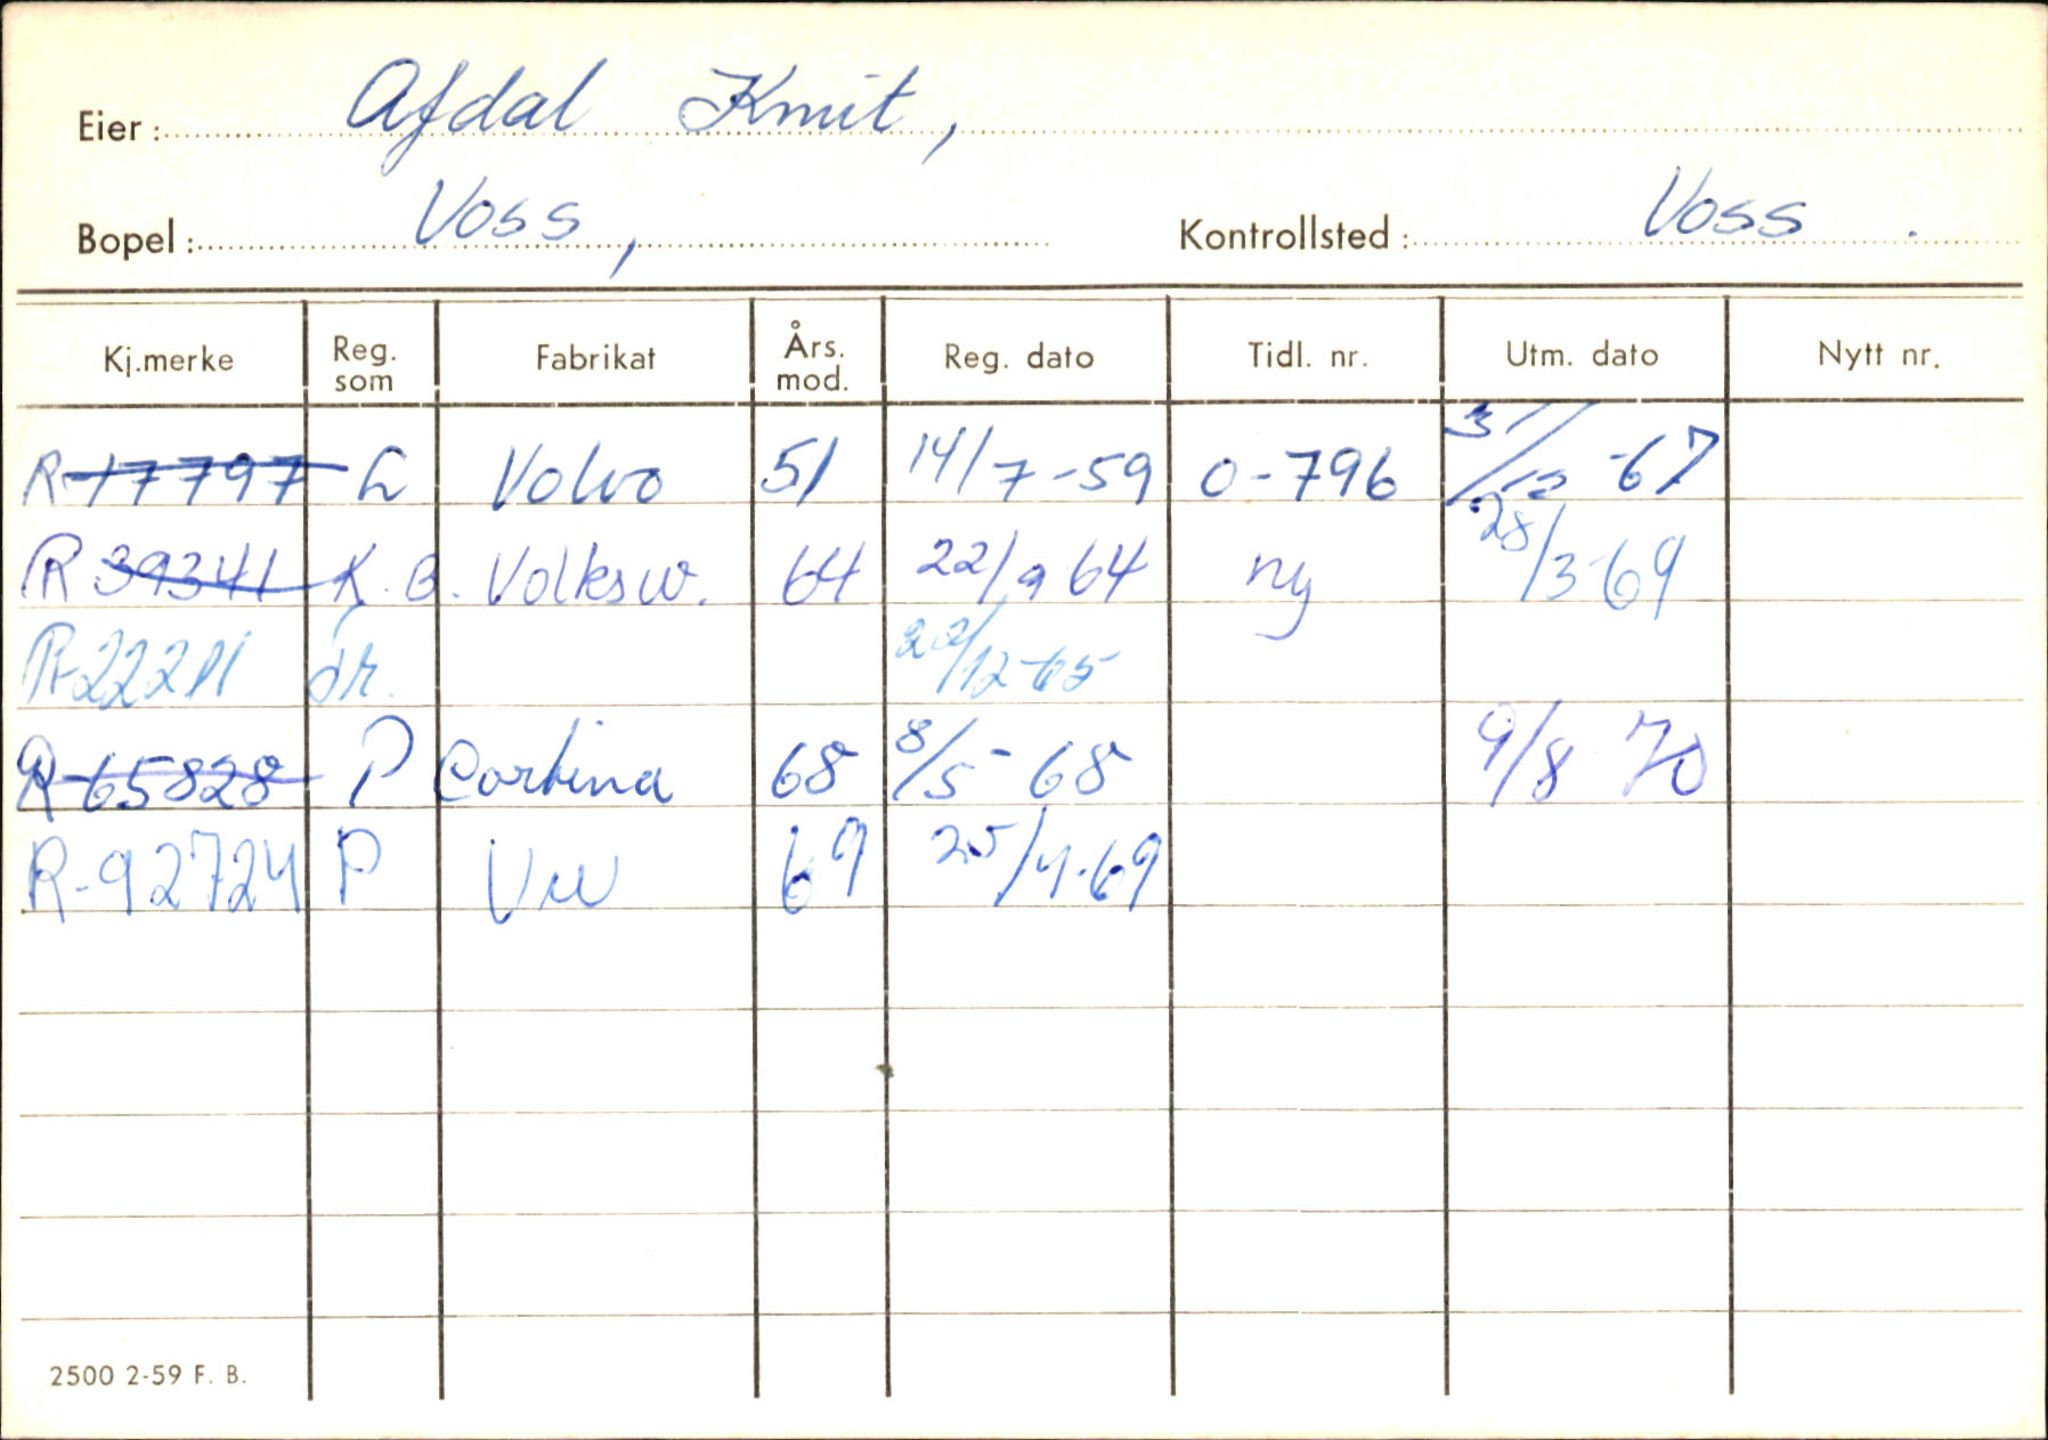 Eier: Afdal Knut,
Bopel: Voss, Kontrollsted: Voss.
Kj.merke Reg. som Fabrikat Års. mod. Reg. dato Tidl. nr. Utm. dato Nytt nr.
R-17797 L Volvo 51 14/7-59 O-796 31/12-67
R 39341 K.B. Volksw. 64 22/9 64 ny 28/3-69
R-22211 dr. 22/12-65
R-65828 P Cortina 68 8/5-68 9/8 70
R-92724 P VW 69 25/4-69
2500 2-59 F. B.